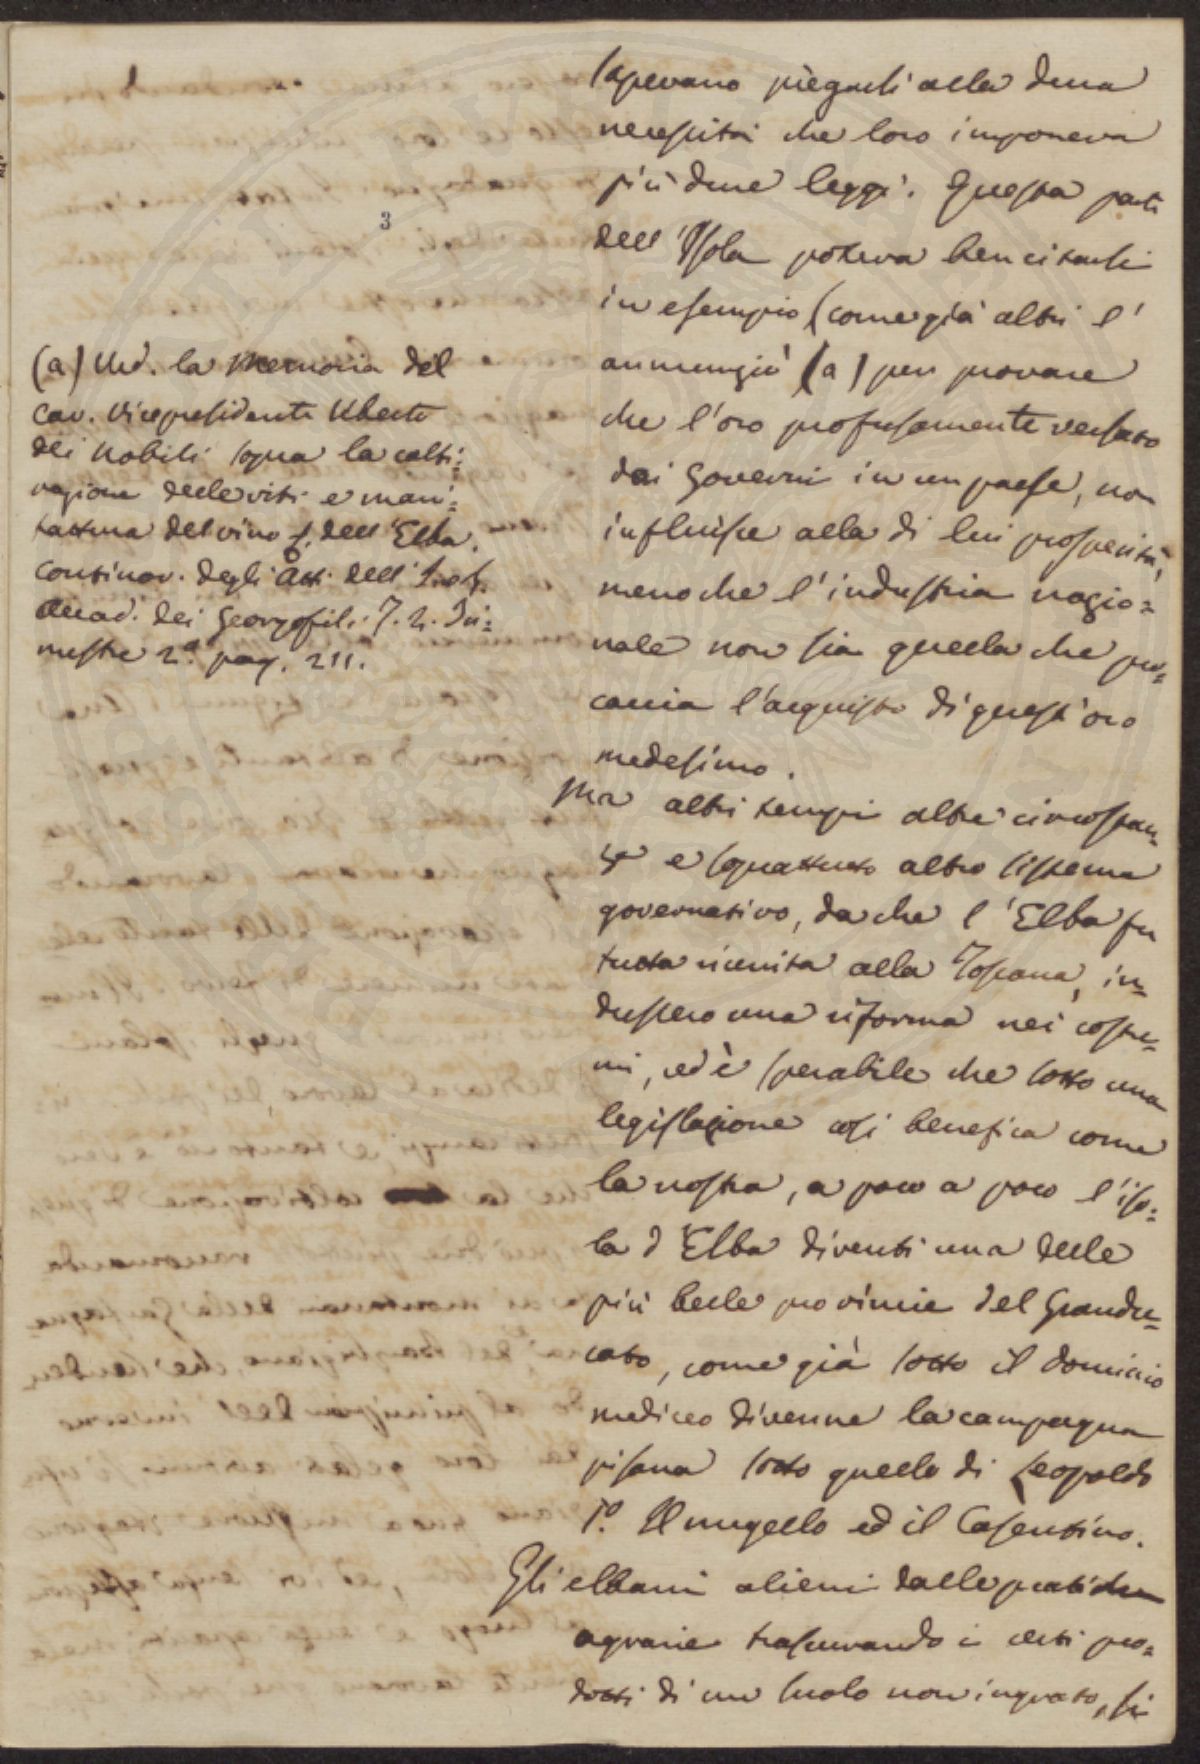 3
sapevano piegarsi alla dura
necessità che loro imponeva
più dure leggi. Questa parte
dell'Isola poteva ben citarsi
in esempio (come già altri l'
annunziò (a) per provare
che l'oro profusamente versato
dai Governi in un paese, non
influisce alla di lui prosperità,
meno che l'industria nazio=
nale non sia quella che pro=
caccia l'acquisto di quest'oro
medesimo.
Ma altri tempi altre circostan=
ze e soprattutto altro sistema
governativo, da che l'Elba fu
tutta riunita alla Toscana, in=
dussero una riforma nei costu=
mi, ed è sperabile che sotto una
legislazione così benefica come
la nostra, a poco a poco l'iso=
la d'Elba diventi una delle
più belle provincie del Grandu=
cato, come già sotto il dominio
mediceo divenne la campagna
pisana sotto quello di Leopoldo
I.º Il mugello ed il Casentino.
Gli elbani alieni dalle pratiche
agrarie trascurando i certi pro=
dotti di un suolo non ingrato, si
(a) Ved. la Memoria del
Cav. Vicepresidente Uberto
dei Nobili sopra la colti=
vazione delle viti e mani=
fattura del vino dell'Elba.
Continov. degli Atti dell'
Accad. dei Georgofili. T. 2. Tri=
mestre 2.º pag. 211.